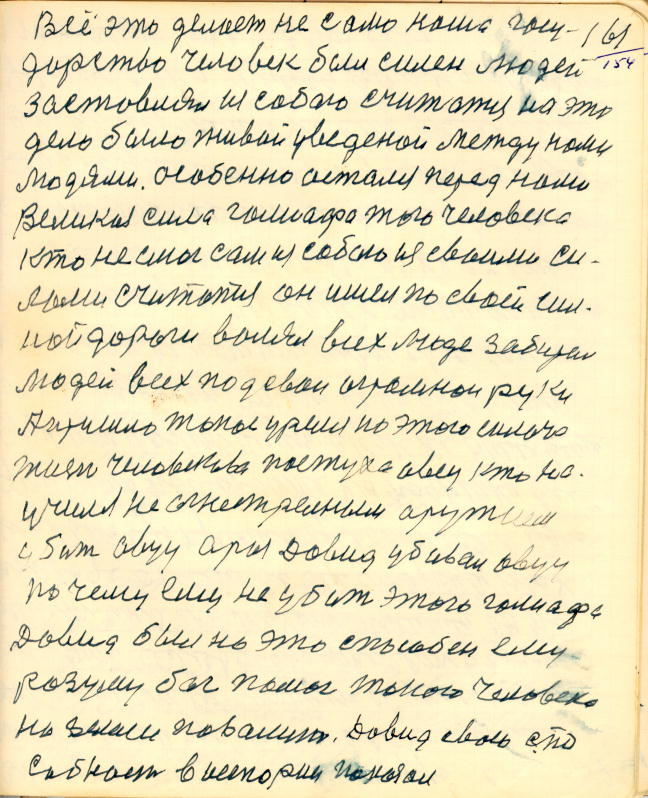 Всё это делает не само наша госу- 161
дарство человек были силен людей 154
заставлял и собою считатся на это
дело было живой уведеной между нами
людями. Особенно остался перед нами
Великая сила голиафа того человека
кто не смог сам и собою и своими си-
лами считатся он имел по своей сил-
ной дороги валял всех люде забирал
людей всех под свои огромнои руки
А пришло такое уремя на этого силача
жизн человекова пастуха овец кто на-
училя не огнестрелным оружием
убит овцу орла Довид убивал овцу
почему ему не убит этого голиафа
Довид был на это способен ему
разуму бог помог такого человека
на земле повалит. Довид свою спо
собност в истории показал